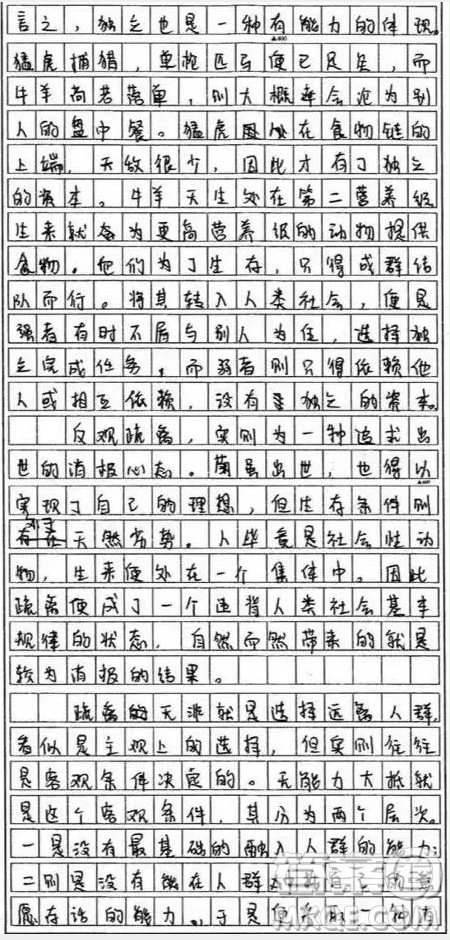 言之，独立也是一种有能力的体现。
猛虎捕猎，单枪匹马便已足矣，而
牛羊尚若落单，则大概率会沦为别
人的盘中餐。猛虎因处在食物链的
上端，天敌很少，因此才有了独立
的资本。牛羊天生处在第二营养级
生来就是为更高营养级的动物提供
食物。他们为了生存，只得成群结
队而行。将其转入人类社会，便是
强者有时不屑与别人为伍，选择独
立完成任务，而弱者则只得依赖他
人或相互依赖，没有独立的资本。
反观疏离，实则为一种追求出
世的消极心态。虽出世，也得以
实现了自己的理想，但生存条件则
处于天然劣势。人毕竟是社会性动
物，生来便处在一个集体中。因此
疏离便成了一个违背人类社会基本
规律的状态，自然而然带来的就是
较为消极的结果。
疏离的无非就是选择远离人群，
看似是主观上的选择，但实则往往
是客观条件决定的。无能力大抵就
是这个客观条件，其分为两个层次。
一是没有最基础的融入人群的能力；
二则是没有能在人群中
愿存活的能力。于是便采取一种有
800
MKQE.COM